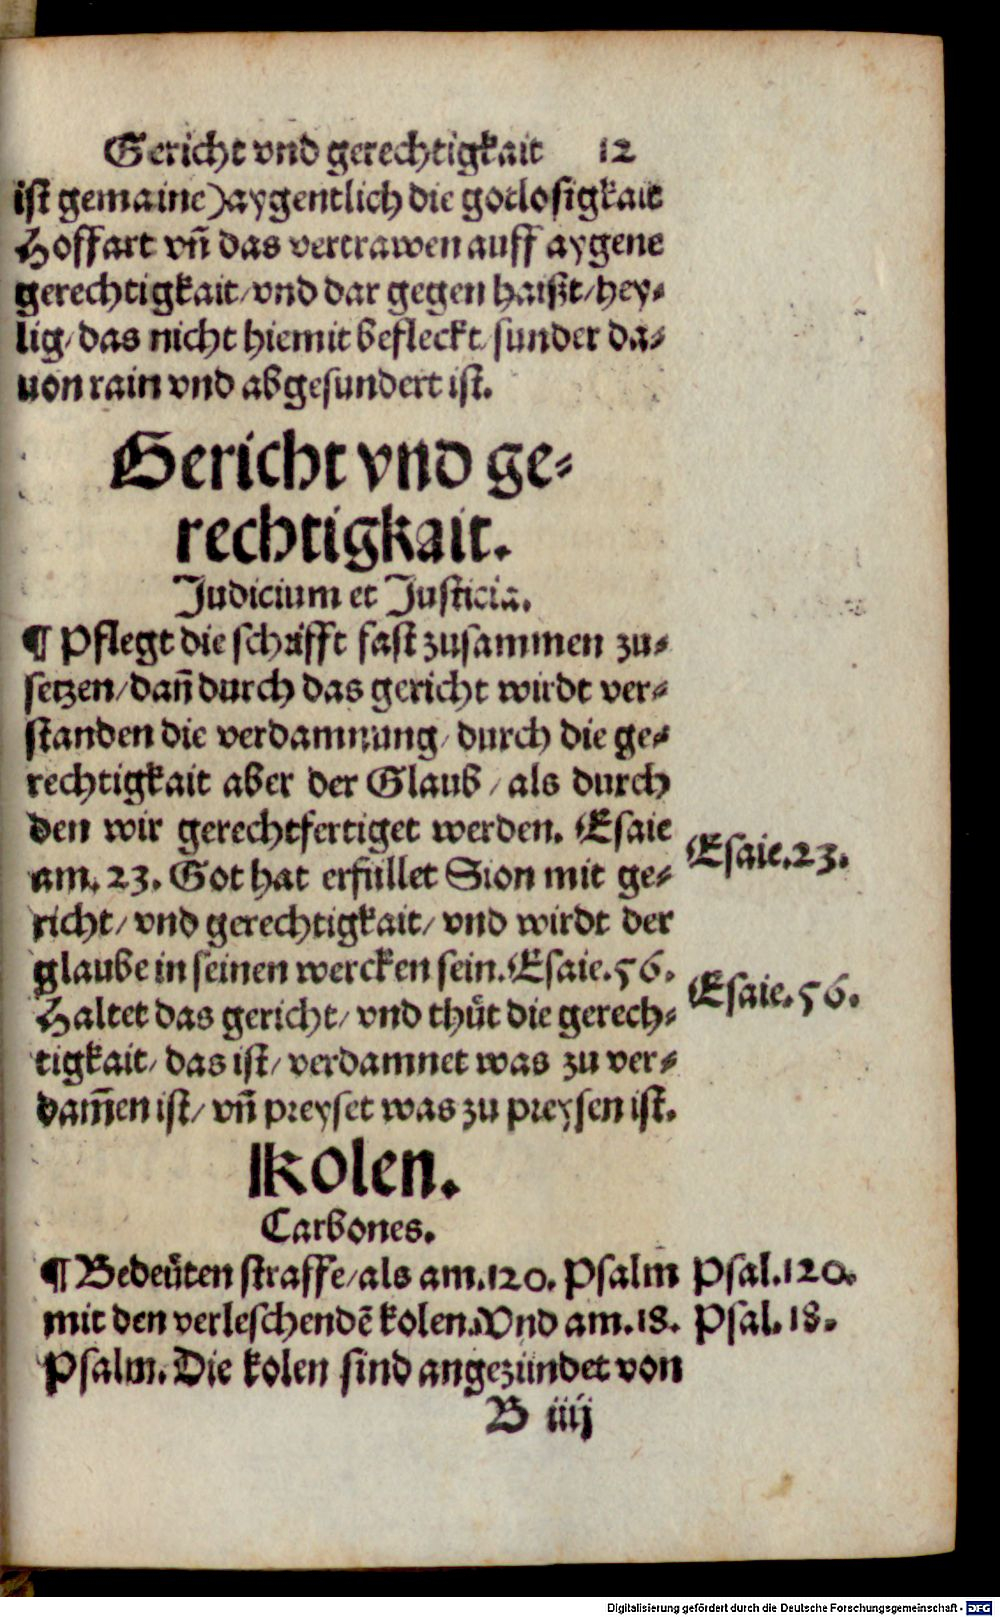 Gericht vnd gerechtigkait 12
ist gemaine) aygentlich die gotlosigkait
Hoffart vñ das vertrawen auff aygene
gerechtigkait/vnd dar gegen haißt/hey⸗
lig/das nicht hiemit befleckt/sunder da⸗
uon rain vnd abgesundert ist.
Gericht vnd ge⸗
rechtigkait.
Judicium et Justicia.
¶ Pflegt die schrifft fast zusammen zu⸗
setzen/dañ durch das gericht wirdt ver⸗
standen die verdamnung/durch die ge⸗
rechtigkait aber der Glaub/als durch
den wir gerechtfertiget werden. Esaie
am. 23. Got hat erfüllet Sion mit ge⸗
Esaie.23.
richt/vnd gerechtigkait/vnd wirdt der
glaube in seinen wercken sein. Esaie.56.
Esaie.56.
Haltet das gericht/vnd thůt die gerech⸗
tigkait/das ist/verdamnet was zu ver⸗
dam̃en ist/vñ preyset was zu preysen ist.
Kolen.
Carbones.
¶ Bedeüten straffe/als am.120. Psalm
Psal.120.
mit den verleschendẽ kolen. Vnd am.18.
Psal.18.
Psalm. Die kolen sind angezündet von
B iiij
Digitalisierung gefördert durch die Deutsche Forschungsgemeinschaft - DFG